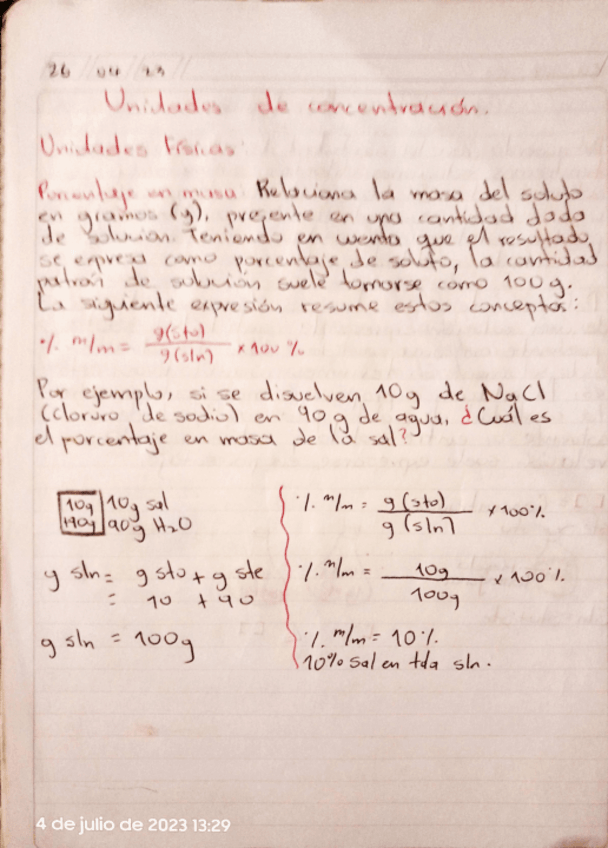 26 04 23
Unidades de concentración.
Unidades físicas:
Porcentaje en masa: Relaciona la masa del soluto
en gramos (g), presente en una cantidad dada
de solución. Teniendo en cuenta que el resultado
se expresa como porcentaje de soluto, la cantidad
patrón de solución suele tomarse como 100 g.
La siguiente expresión resume estos conceptos:
% m/m = g(sto) / g(sln) x 100 %
Por ejemplo, si se disuelven 10g de NaCl
(cloruro de sodio) en 90 g de agua, ¿Cuál es
el porcentaje en masa de la sal?
10g 10g sal
+90g 90g H2O
g sln = g sto + g ste
= 10 + 90
g sln = 100g
% m/m = g (sto) / g (sln) x 100%
% m/m = 10g / 100g x 100%
% m/m = 10%
10% sal en tda sln.
4 de julio de 2023 13:29